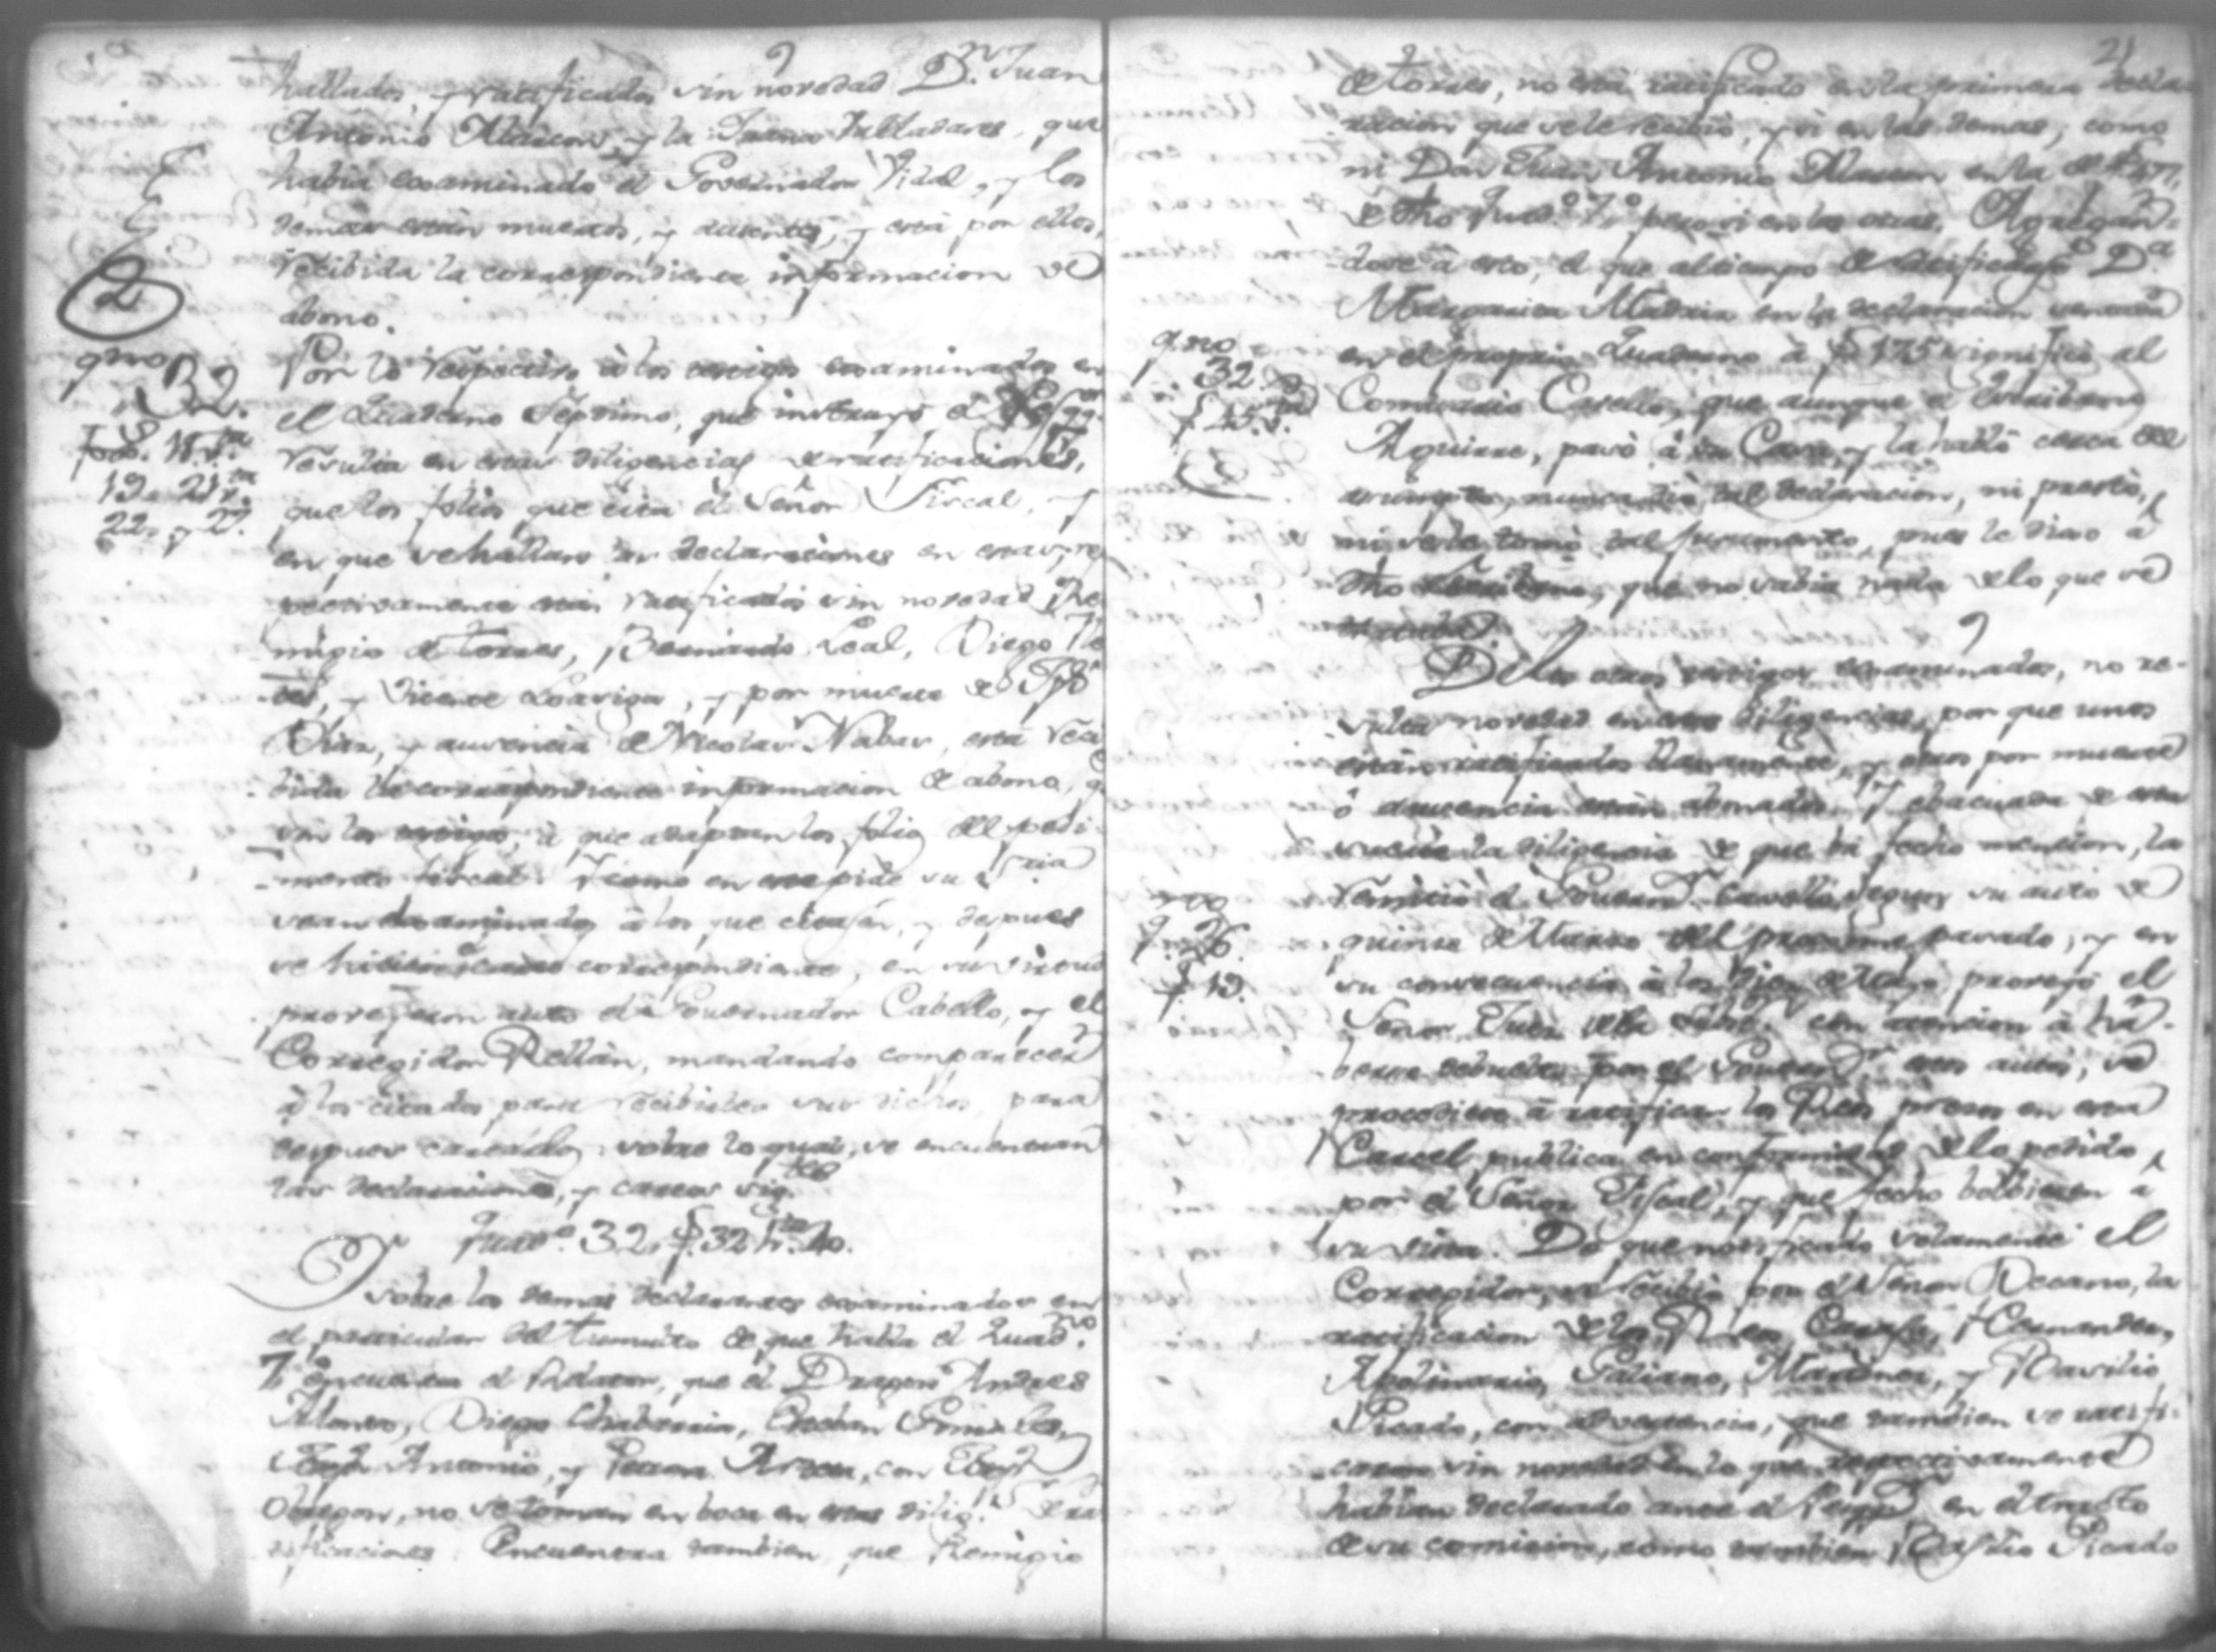 hallados, y ratificados sin novedad D.n Juan
Antonio Alarcon, y la Juana Valladares, que
habia examinado el Governador Vidal, y los
demas estan muertos, y ausentes, y está por ellos,
recibida la correspondiente informacion de
abono.
2
qno
32.
fos. 18. v.ta
19. 21 v.ta
22. y 27.
Por lo respectivo à los testigos examinados en
el Quaderno Septimo, que instruyó el
resulta en estas diligencias de ratificaciones,
que los folios que cita el Señor Fiscal, y
en que se hallan sus declaraciones en estas, res
pectivamente están ratificados sin novedad Re
migio de Torres, Bernardo Leal, Diego
y Vicente Loariga, y por muerte de
Dias, y ausencia de Nicolas Nabas, está reci
bida la correspondiente informacion de abono, q.e
son los testigos, à que adaptan los folios del pedi
mento fiscal. Y como en este pide su S.ria
sean examinados à los que citasen, y despues
se hiciesen careo correspondiente, en su virtud
proveyeron auto el Governador Cabello, y el
Corregidor Rellán, mandando comparecer
à los citados para recibirles sus dichos, para
despues carearlos, sobre lo qual, se encuentran
las declaraciones, y careos sig.tes
Quad.o 32. f. 32 h.ta 40.
Y sobre los demas declarantes examinados en
el particular del tumulto de que habla el Quad.no
7.o encuentra el Relator, que el Dragon Andres
Alonso, Diego Chabarria, Esteban
Antonio, y Arzeu, con
Obregon, no se toman en boca en estas dilig.s de ra
tificaciones. Encuentra tambien, que Remigio
21
de Torres, no está ratificado en la primera decla
racion que se le recibió, y si en las demas, como
ni Don Juan Antonio Alarcon en la de f. 177,
de dho Quad.o 7.o pero si en las otras. Agregan
dose à esto, el que al tiempo de ratificarse D.a
Margarita Madriz en la declaracion sentada
qno
32
f. 25. v.ta
en el propio Quaderno à f. 175 significó al
Comisario Cavello, que aunque el Escribano
Aguirre, pasó à su Casa, y la habló cerca del
asumpto, nunca dió tal declaracion, ni prestó,
ni se le tomó tal juramento, pues le dixo à
dho Escribano, que no sabia nada de lo que se
trataba.
De los otros testigos examinados, no re
sulta novedad en estas diligencias, por que unos
están ratificados llanamente, y otros por muerte
ó ausencia están abonados. Y evacuada de esta
suerte la diligencia de que ha fecho mencion, la
remitió el Govern.r Cavello, segun su auto de
qno
26.
f. 19.
quinze de Marzo del proximo pasado, y en
su consecuencia à los dies de Mayo proveyó el
Señor Juez con atencion à ha
berse debuelto por el Govern.r estos autos, se
procediese à ratificar los Reos presos en esta
Carcel publica en conformidad de lo pedido,
por el Señor Fiscal, y que fecho bolbiesen à
su vista. De que notificado solamente el
Corregidor, se recibió por el Señor Decano, la
ratificacion de los Reos Hernandez,
Apolinario, Galiano, Martinez, y Basilio
Picado, con advertencia, que tambien se ratifi
caron sin novedad en lo que respectivamente
habian declarado ante el en el tracto
de su comision, como tambien Basilio Picado